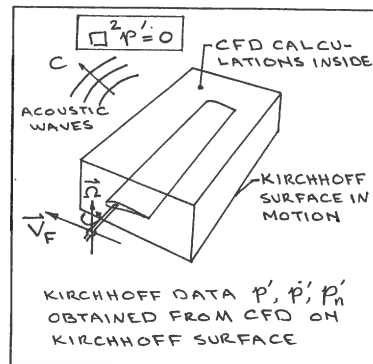 □²p'=0
C
ACOUSTIC
WAVES
CFD CALCU-
LATIONS INSIDE
KIRCHHOFF
SURFACE IN
MOTION
V⃗_F
KIRCHHOFF DATA p', ṗ', p'ₙ
OBTAINED FROM CFD ON
KIRCHHOFF SURFACE